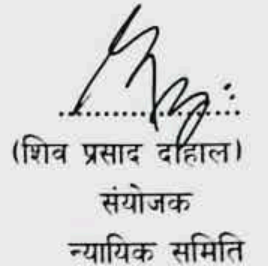 (शिव प्रसाद दाहाल)
संयोजक
न्यायिक समिति